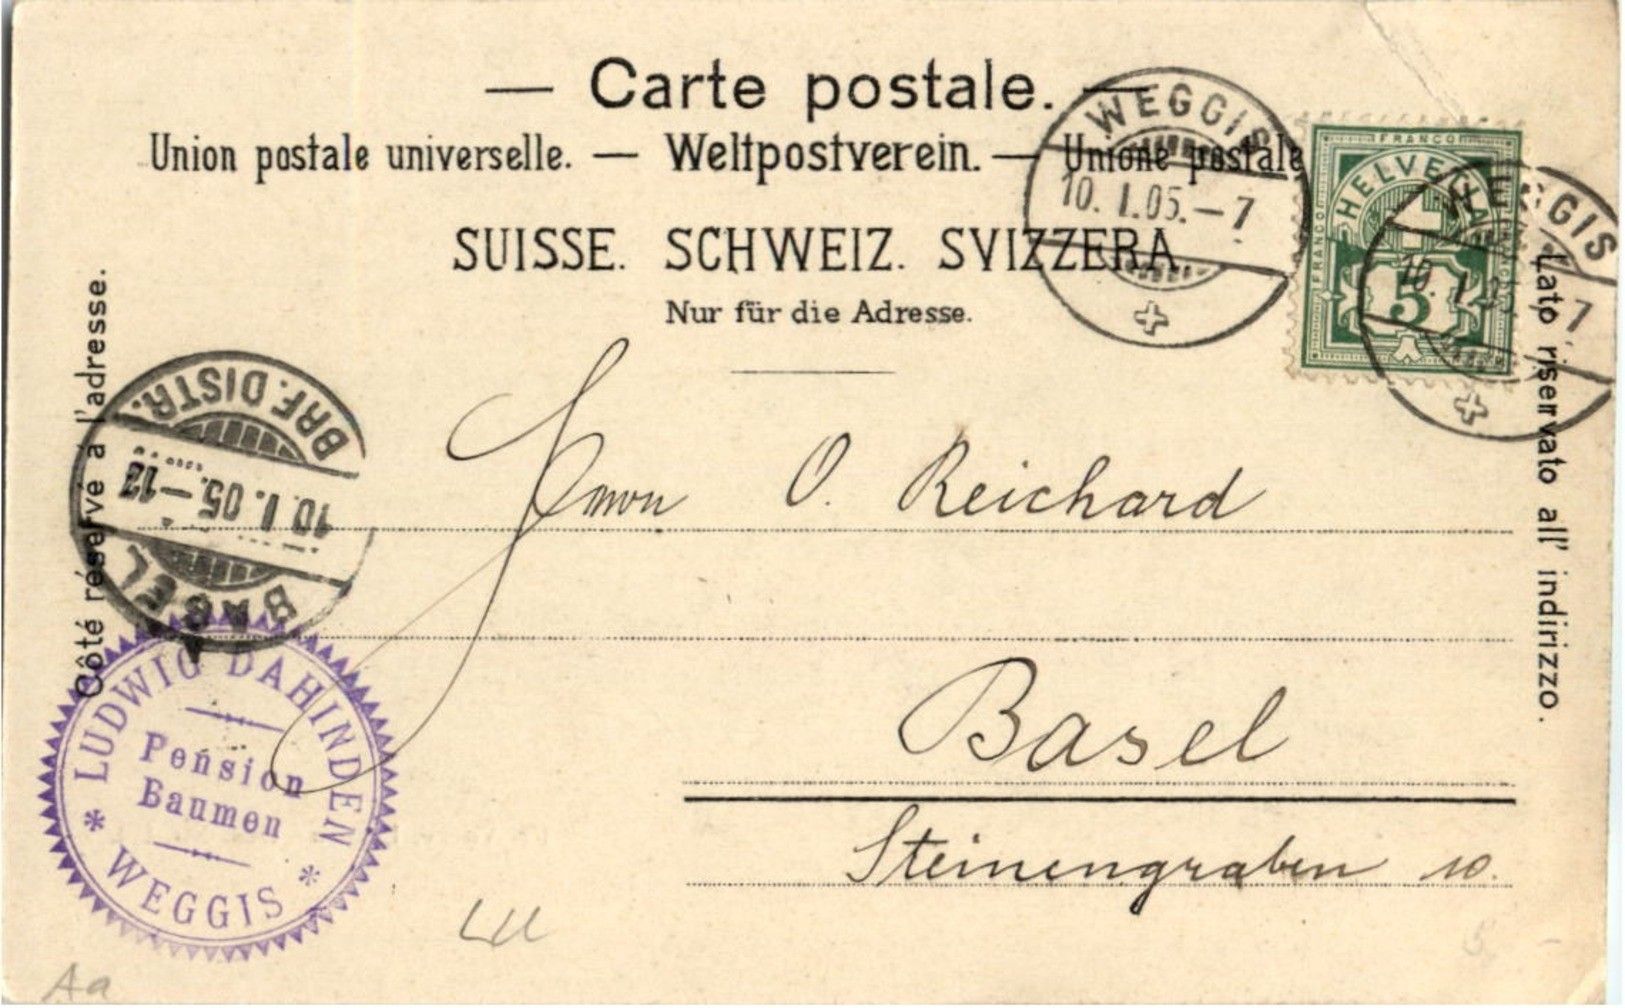 — Carte postale. —
Union postale universelle. — Weltpostverein. — Unione postale
SUISSE. SCHWEIZ. SVIZZERA
Nur für die Adresse.
Côté réservé à l'adresse.
Lato riservato all' indirizzo.
WEGGIS
10. I. 05. – 7
FRANCO
HELVETIA
FRANCO
5
WEGGIS
10. I. 05. 7
BRF. DISTR.
10. I. 05. – 12
BASEL
O. Reichard
Basel
Steinengraben 10.
LUDWIG DAHINDEN
Pension
Baumen
* WEGGIS *
LU
Aa
5. –